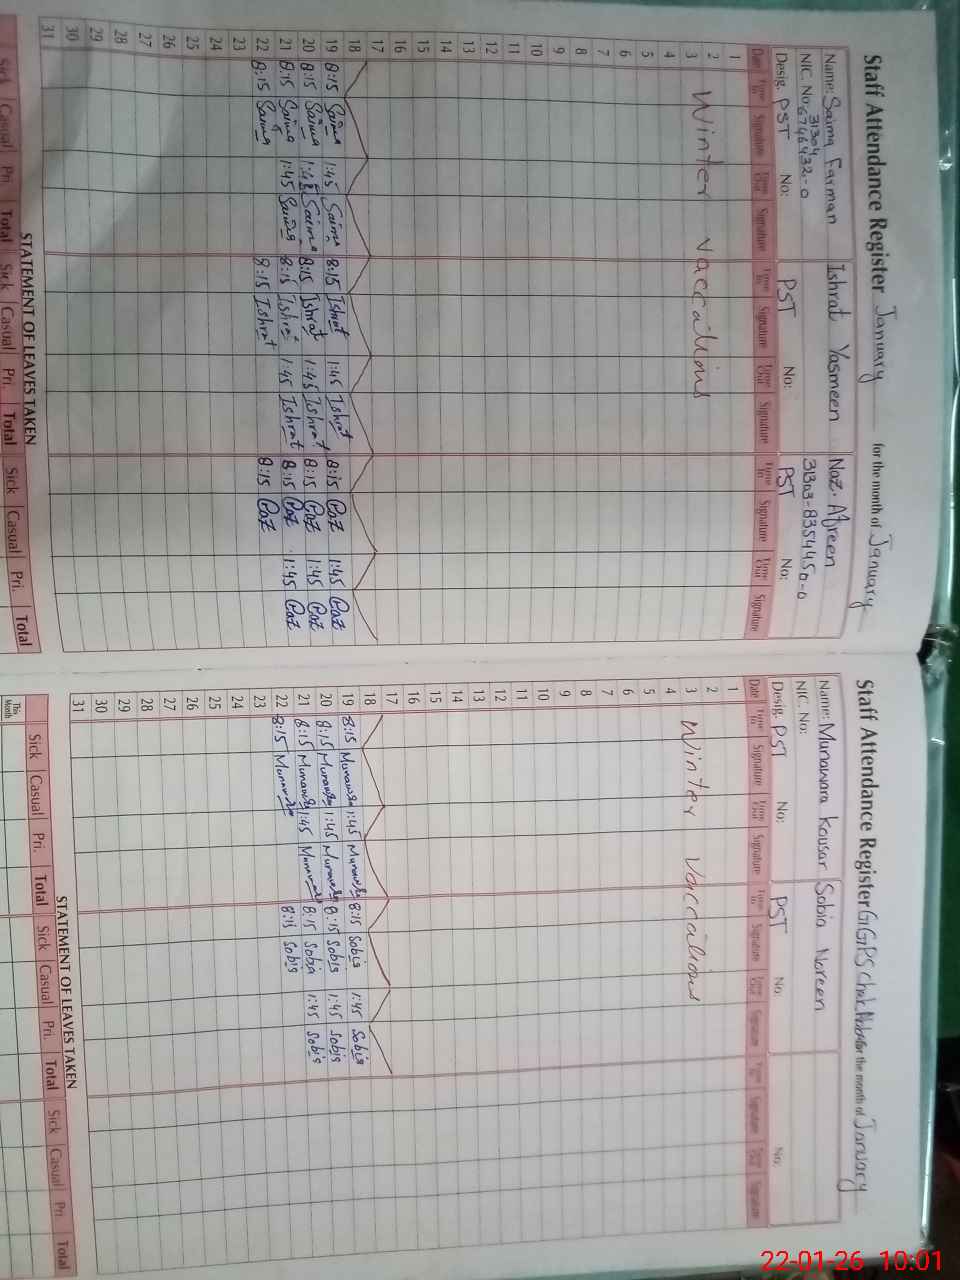 Staff Attendance Register January for the month of January
Name: Saima Farman Ishrat Yasmeen Naz. Afreen
NIC. No. 31304 6746432-0 31303-8354450-0
Desig. PST No: PST No: PST No:
Date Time In Signature Time Out Signature Time In Signature Time Out Signature Time In Signature Time Out Signature
1
2
3 Winter vaccations
4
5
6
7
8
9
10
11
12
13
14
15
16
17
18
19 8:15 Saima 1:45 Saima 8:15 Ishrat 1:45 Ishrat 8:15 1:45
20 8:15 Saima 1:45 Saima 8:15 Ishrat 1:45 Ishrat 8:15 1:45
21 8:15 Saima 1:45 Saima 8:15 Ishrat 1:45 Ishrat 8:15 1:45
22 8:15 Saima 8:15 Ishrat 8:15
23
24
25
26
27
28
29
30
31
STATEMENT OF LEAVES TAKEN
Sick Casual Pri. Total Sick Casual Pri. Total Sick Casual Pri. Total
Staff Attendance Register GGPS Chak for the month of January
Name: Munawara Kousar Sobia Noreen
NIC. No:
Desig. PST No: PST No: No:
Date Time In Signature Time Out Signature Time In Signature Time Out Signature Time In Signature Time Out Signature
1
2
3 Winter Vaccations
4
5
6
7
8
9
10
11
12
13
14
15
16
17
18
19 8:15 Munawara 1:45 Munawara 8:15 Sobia 1:45 Sobia
20 8:15 Munawara 1:45 Munawara 8:15 Sobia 1:45 Sobia
21 8:15 Munawara 1:45 Munawara 8:15 Sobia 1:45 Sobia
22 8:15 Munawara 8:15 Sobia
23
24
25
26
27
28
29
30
31
STATEMENT OF LEAVES TAKEN
Sick Casual Pri. Total Sick Casual Pri. Total Sick Casual Pri. Total
This Month
22-01-26 10:01